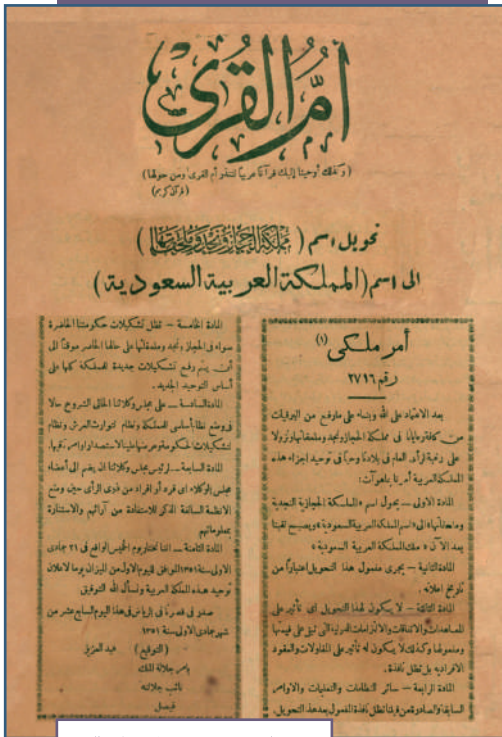 أم القرى
(وكذلك أوحينا إليك قرآنا عربيا لتنذر أم القرى ومن حولها)
(قرآن كريم)
تحويل اسم (مملكة الحجاز ونجد وملحقاتها)
الى اسم (المملكة العربية السعودية)
أمر ملكي (١)
رقم ٢٧١٦
بعد الاعتماد على الله وبناء على مارفع من البرقيات
من كافة رعايانا في مملكة الحجاز ونجد وملحقاتها ونزولا
على رغبة الرأى العام في بلادنا وحبا في توحيد اجزاء هذه
المملكة العربية أمرنا بماهو آت:
المادة الاولى – يحول اسم «المملكة الحجازية النجدية
وملحقاتها» الى «اسم المملكة العربية السعودية» ويصبح لقبنا
بعد الآن «ملك المملكة العربية السعودية»
المادة الثانية – يجرى مفعول هذا التحويل اعتبارا من
تاريخ اعلانه.
المادة الثالثة – لا يكون لهذا التحويل اى تأثير على
المعاهدات والاتفاقات والالتزامات الدولية التي تبقى على قيمتها
ومفعولها وكذلك لا يكون له تأثير على المقاولات والعقود
الافرادية بل تظل نافذة.
المادة الرابعة – سائر النظامات والتعليمات والاوامر
السابقة والصادرة من قبلنا تظل نافذة المفعول بعد هذا التحويل.
المادة الخامسة – تظل تشكيلات حكومتنا الحاضرة
سواء في الحجاز ونجد وملحقاتها على حالها الحاضر موقتا الى
أن يتم وضع تشكيلات جديدة للمملكة كلها على
أساس التوحيد الجديد.
المادة السادسة – على مجلس وكلائنا الحالى الشروع حالا
في وضع نظام أساسى للمملكة ونظام لتوارث العرش ونظام
لتشكيلات الحكومة وعرضها علينا لاستصدار اوامرنا فيها.
المادة السابعة – لرئيس مجلس وكلائنا ان يضم الى أعضاء
مجلس الوكلاء اى فرد أو افراد من ذوى الرأى حين وضع
الانظمة السالفة الذكر للاستفادة من آرائهم والاستنارة
بمعلوماتهم
المادة الثامنة – اننا نختار يوم الخميس الواقع في ٢١ جمادى
الاولى سنة ١٣٥١ الموافق لليوم الاول من الميزان يوما لاعلان
توحيد هذه المملكة العربية ونسأل الله التوفيق
صدر في قصرنا في الرياض في هذا اليوم السابع عشر من
شهر جمادى الاولى سنة ١٣٥١
(التوقيع) عبد العزيز
بامر جلالة الملك
نائب جلالته
فيصل